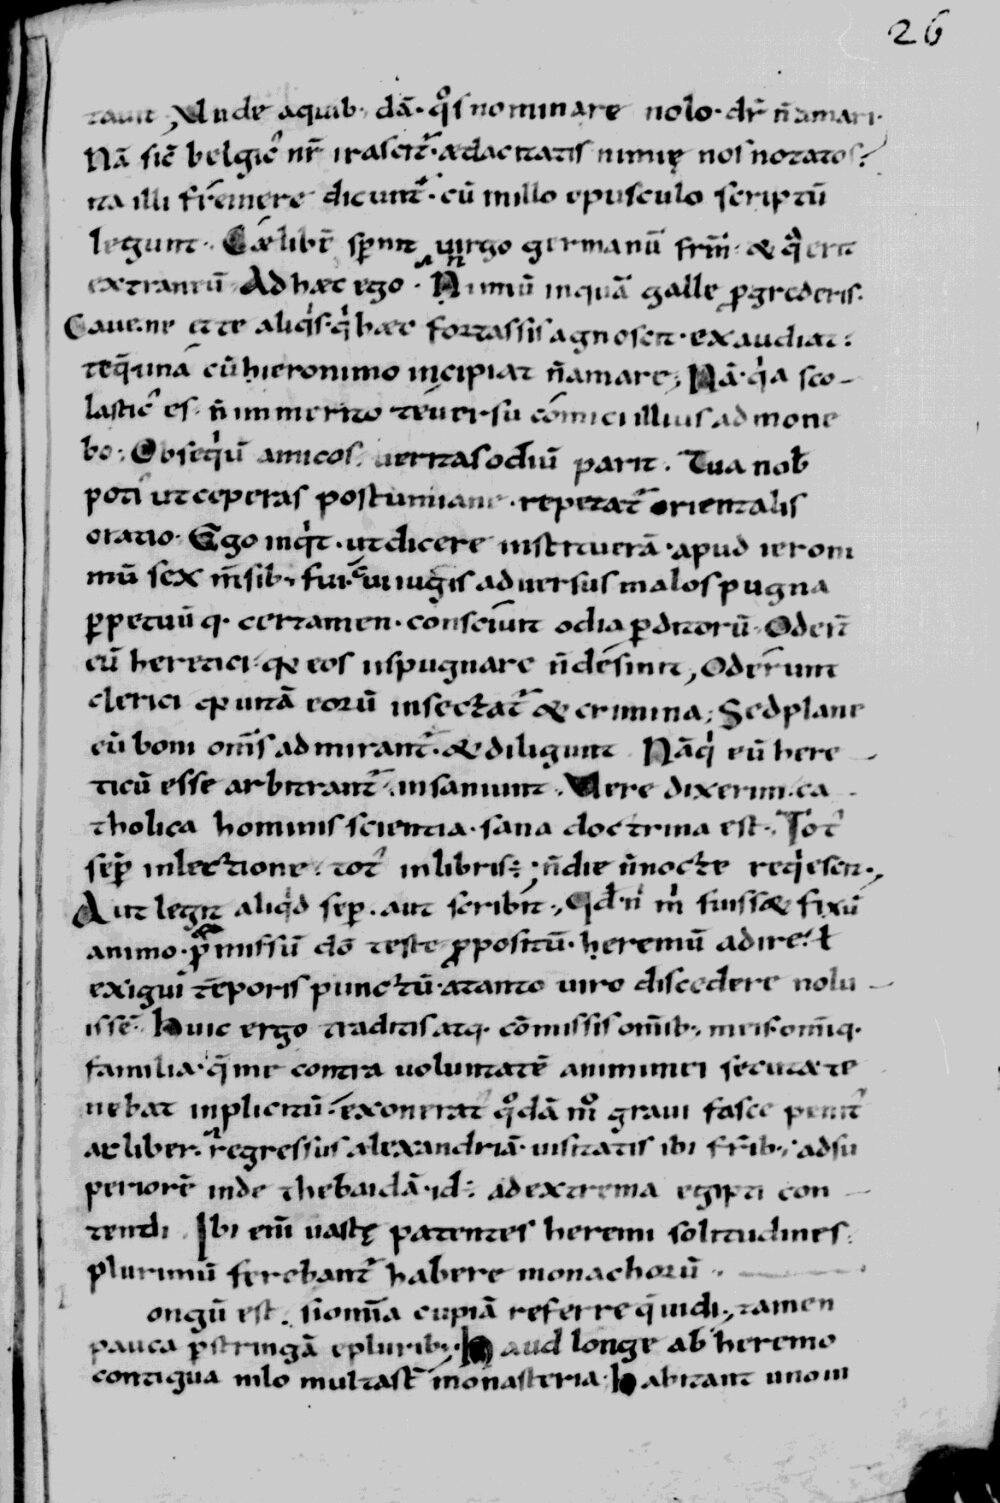 26
tauit, Unde aquib; dā· q°s nominare nolo· dr̄ n̄ amari·
Nā sic̄ belgic' nr̄ irascit̄· ædacitatis nimię nos notatos?
ita illi fremere dicunt̄· cū in illo opusculo scriptū
legunt· Cælibē spernit uirgo germanū fr̄m· & q̄rit
extraneū· Ad hæc ego· Nimiū inquā galle p̱grederis·
Caue ne et te aliq's· q' hæc fortassis agnoscit· exaudiat:
teq̄· unā cū hieronimo incipiat n̄ amare; Nā· q'a sco-
lastic' es· n̄ immerito te uersu comici illius admone
bo· Obseq'ū amicos· ueritas odiū parit· Tua nob̄
poti' ut ceperas postumiane· repetat̄ orientalis
oratio· Ego inq'd· ut dicere institueram̄· apud ieroni
mū sex m̄sib; fui· cui iugis aduersus malos pugna
p̱petuū q· certamen· consciuit odia p̱ditorū· Oder̄t
eū heretici· qr̄ eos inpugnare n̄ desinit, Oderunt
clerici qr̄ uitā eorū insectat̄ & crimina; Sed plane
eū boni om̄s admirant̄· & diligunt Nā q' eū here
ticū esse arbitrant̄· insaniunt· Vere dixerim· ca
tholica hominis scientia· sana doctrina est· Tot'
sep̄ in lectione· tot' in libris; n̄ die n̄ nocte req'escit·,
Aut legit aliq'd sep̄· aut scribit·, Qd̄ n' m' fuiss& fixū
animo· p̄missū dō teste p̱positū· heremū adire· ł
exigui tēporis punctū· a tanto uiro discedere nolu
issē· Huic ergo traditis atq· cōmissis omib; meis· om̄iq·
familia· q̄ me contra uoluntatē animi mei secuta te
nebat inplicitū· exonerat' q°dā m° graui fasce penit'
ac liber· regressus alexandriā· uisitatis ibi fr̄ib; ad su
periorē inde thebaidā· id; ad extrema egipti con
tendi Ibi eni uastę patentes heremi solitudines·
plurimū ferebant̄ habere monachorū·
ongū est· si om̄ia cupiā referre q̄ uidi, tamen
pauca p̱stringā e plurib; Haud longe ab heremo
contigua nilo multa st̄ monasteria· Habitant uno in